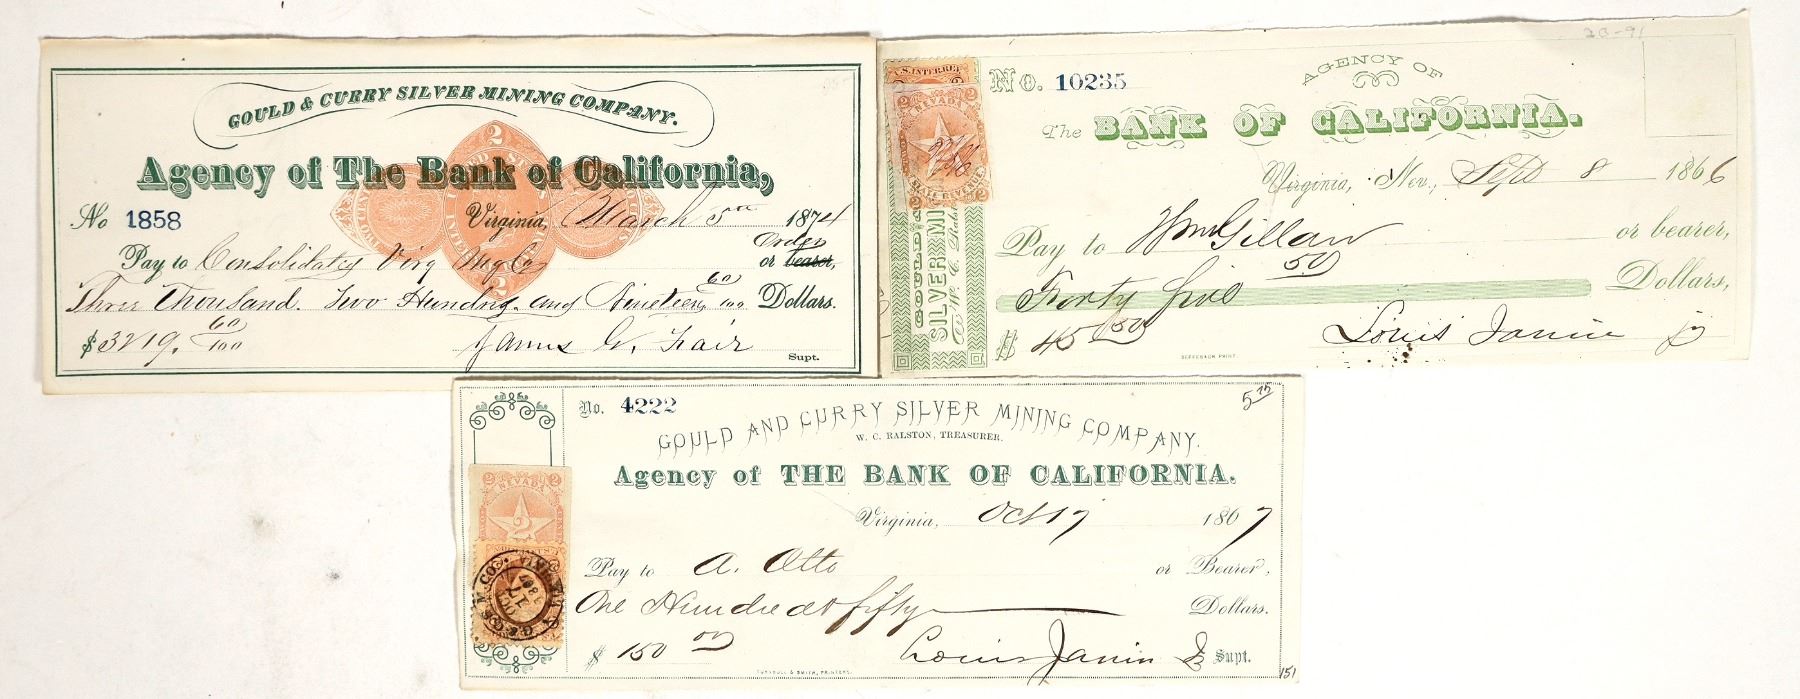 GOULD & CURRY SILVER MINING COMPANY.
Agency of The Bank of California,
No 1858
Virginia, March 5th 1874
Pay to Consolidated Virg Mg Co or bearer, Order
Three Thousand. Two Hundred and Nineteen 60/100 Dollars.
$3219. 60/100
James G. Fair
Supt.
20-91
U.S. INTER. REV
2 NEVADA 2
No. 10235
AGENCY OF
The BANK OF CALIFORNIA.
Virginia, Nev., Sept 8 1866
Pay to Wm Gillan or bearer,
Forty five 50 Dollars,
$ 45 50
Louis Janin Jr
GOULD &
SILVER MIN
BRITTON PRINT
5 75
No. 4222
GOULD AND CURRY SILVER MINING COMPANY.
W. C. RALSTON, TREASURER.
Agency of THE BANK OF CALIFORNIA.
2 NEVADA 2
2
Virginia, Oct 17 1867
Pay to A. Otto or Bearer,
One Hundred & fifty Dollars.
$ 150 00
Louis Janin Jr Supt.
TURNBULL & SMITH, PRINTERS.
151